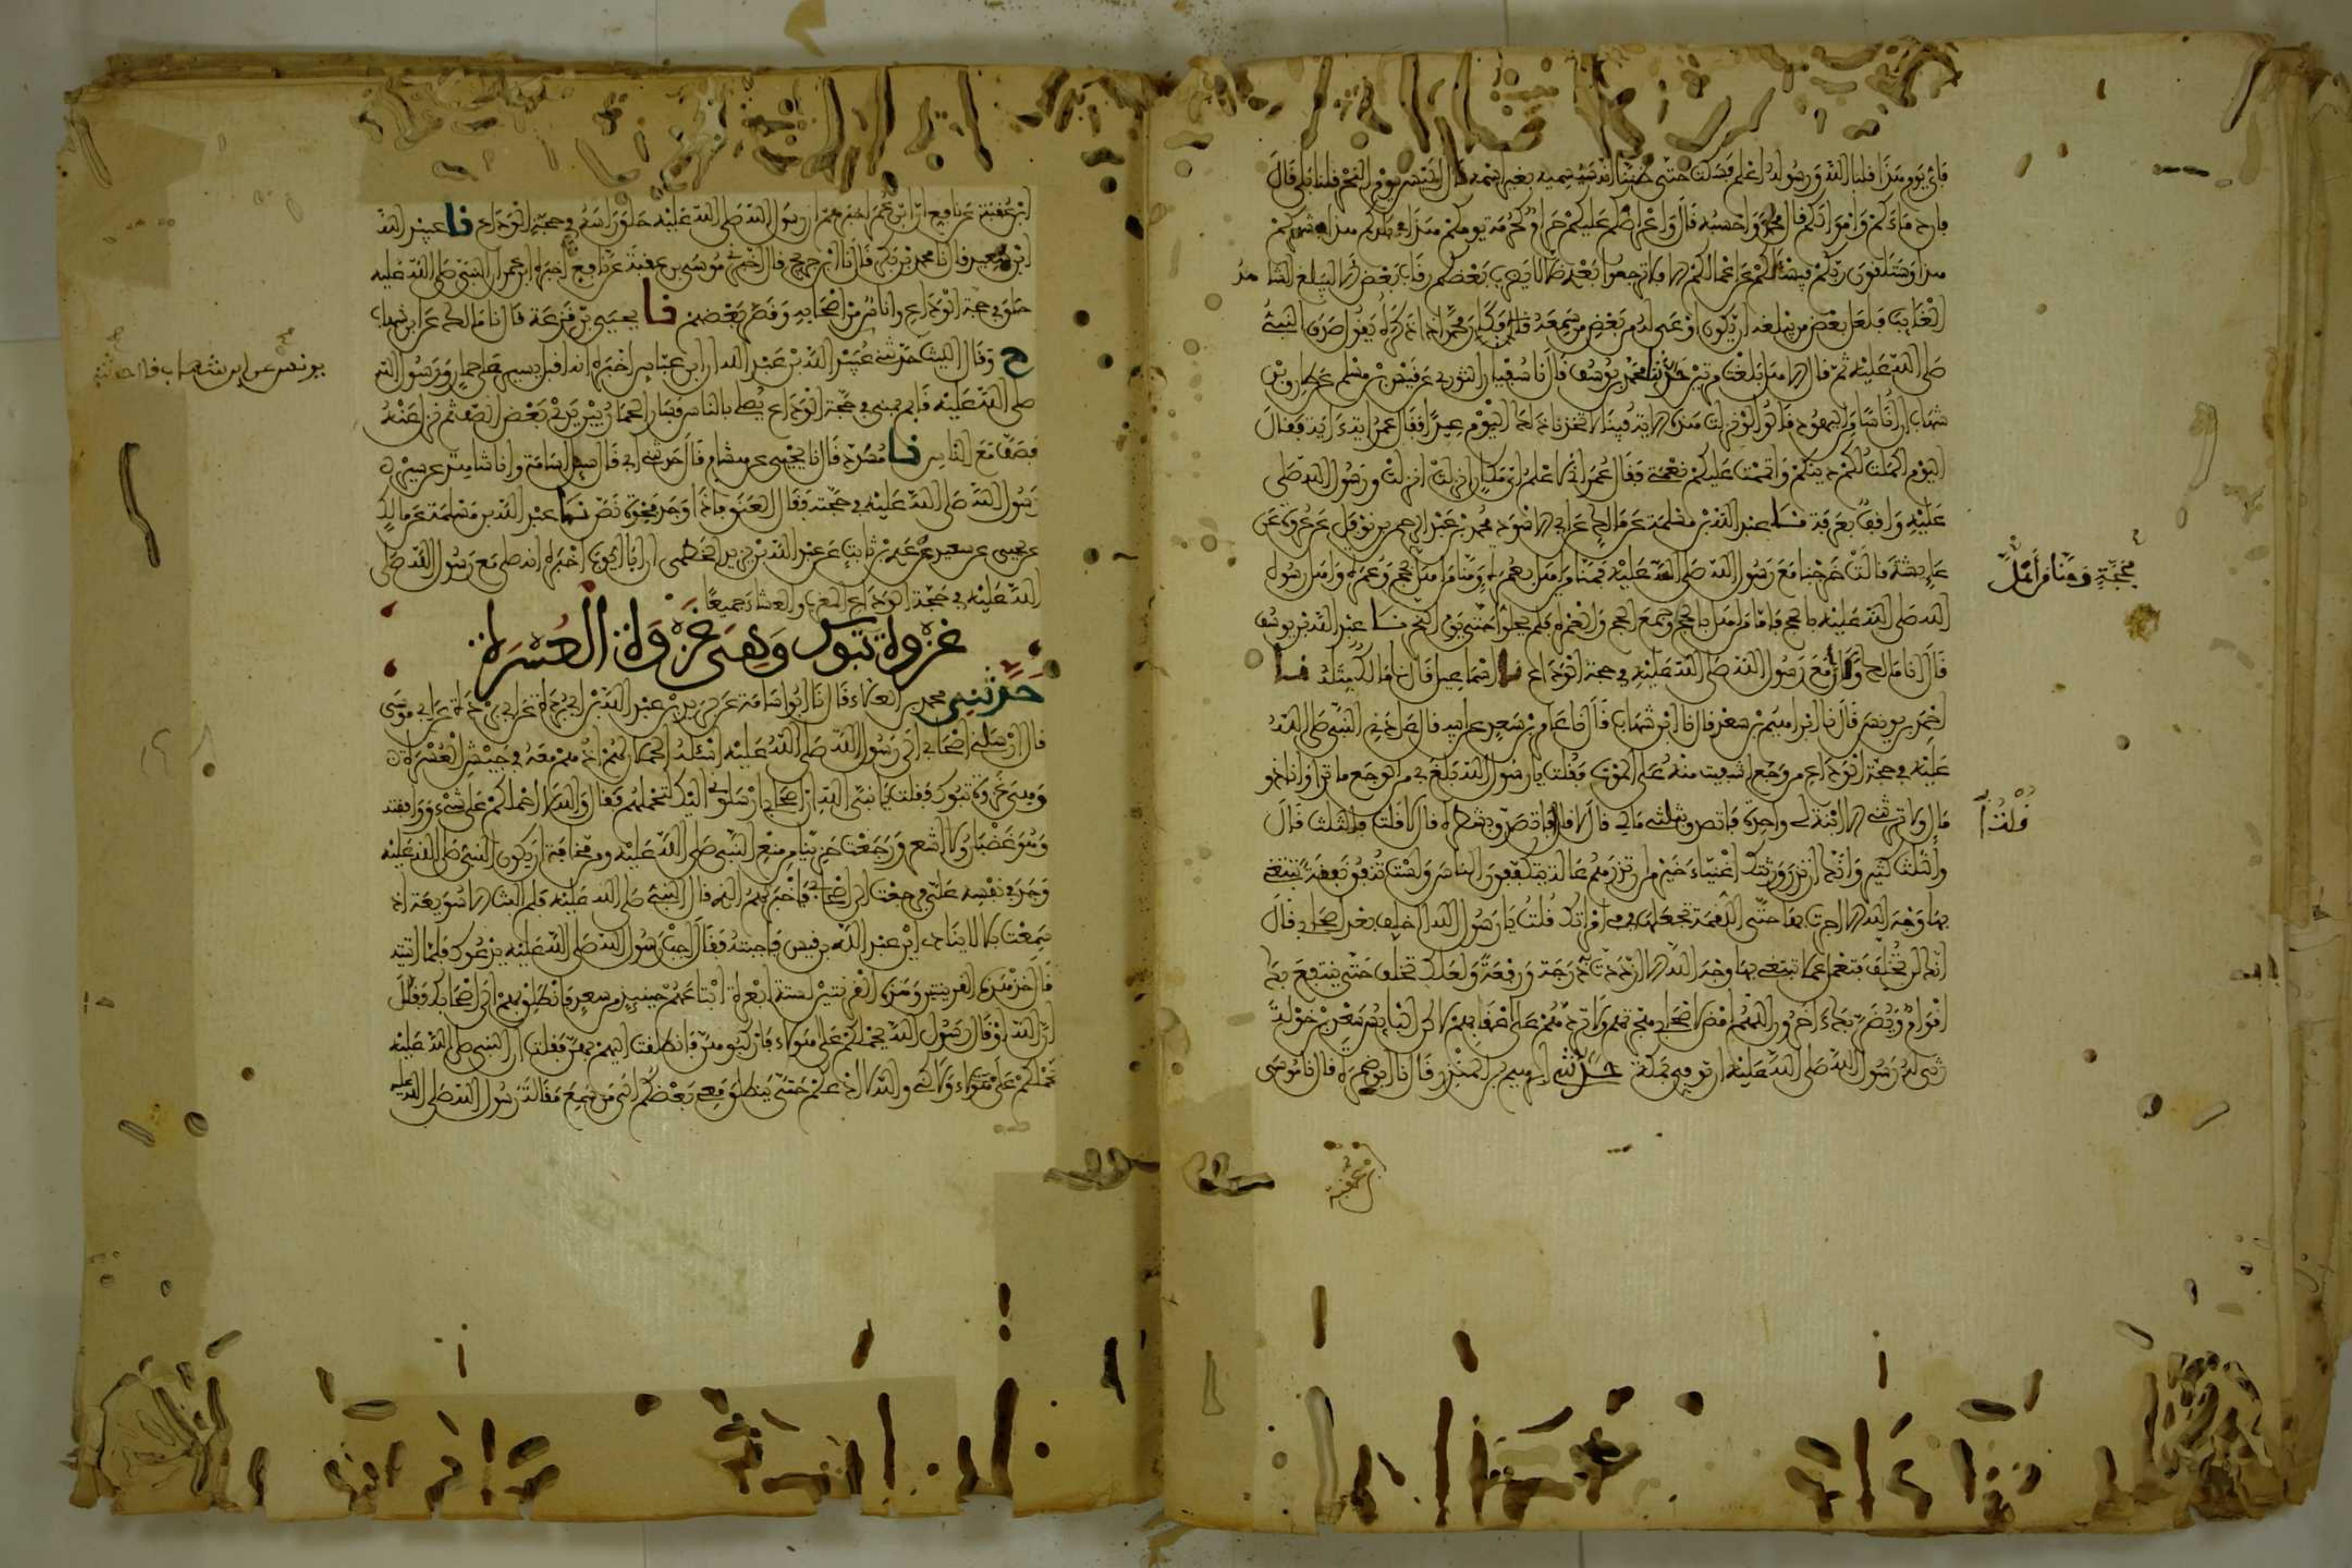 فأي يوم هذا قلنا الله ورسوله أعلم فسكت حتى ظننا أنه سيسميه بغير اسمه قال أليس يوم النحر قلنا بلى قال
فإن دماءكم وأموالكم قال محمد وأحسبه قال وأعراضكم عليكم حرام كحرمة يومكم هذا في بلدكم هذا في شهركم
هذا وستلقون ربكم فيسألكم عن أعمالكم ألا فلا ترجعوا بعدي ضلالا يضرب بعضكم رقاب بعض ألا ليبلغ الشاهد
الغائب فلعل بعض من يبلغه أن يكون أوعى له من بعض من سمعه فكان محمد إذا ذكره يقول صدق النبي
صلى الله عليه ثم قال ألا هل بلغت مرتين حدثنا محمد بن يوسف قال نا سفيان الثوري عن قيس بن مسلم عن طارق بن
شهاب أن أناسا من اليهود قالوا لو نزلت هذه الآية فينا لاتخذنا ذلك اليوم عيدا فقال عمر أية آية فقال
اليوم أكملت لكم دينكم وأتممت عليكم نعمتي فقال عمر إني لأعلم أي مكان أنزلت أنزلت ورسول الله صلى
عليه واقف بعرفة نا عبد الله بن مسلمة عن مالك عن أبي الأسود محمد بن عبد الرحمن بن نوفل عن عروة عن
عايشة قالت خرجنا مع رسول الله صلى الله عليه فمنا من أهل بعمرة ومنا من أهل بحج وعمرة وأهل رسول
بحجة ومنا من أهل
الله صلى الله عليه بالحج فأما من أهل بالحج أو جمع الحج والعمرة فلم يحلوا حتى يوم النحر نا عبد الله بن يوسف
قال أنا مالك وقال مع رسول الله صلى الله عليه في حجة الوداع نا إسماعيل قال نا مالك مثله نا
أحمد بن يونس قال نا إبراهيم بن سعد قال نا ابن شهاب قال نا عامر بن سعد عن أبيه قال عادني النبي صلى الله
عليه في حجة الوداع من وجع أشفيت منه على الموت فقلت يا رسول الله بلغ بي من الوجع ما ترى وأنا ذو
مال ولا ترثني إلا ابنة لي واحدة فأتصدق بثلثي مالي قال لا قلت أفأتصدق بشطره قال لا قلت فالثلث قال
قلت
والثلث كثير وإنك أن تذر ورثتك أغنياء خير من أن تذرهم عالة يتكففون الناس ولست تنفق نفقة تبتغي
بها وجه الله إلا أجرت بها حتى اللقمة تجعلها في في امرأتك قلت يا رسول الله أأخلف بعد أصحابي قال
إنك لن تخلف فتعمل عملا تبتغي بها وجه الله إلا ازددت به درجة ورفعة ولعلك تخلف حتى ينتفع بك
أقوام ويضر بك آخرون اللهم أمض لأصحابي هجرتهم ولا تردهم على أعقابهم لكن البائس سعد بن خولة
رثى له رسول الله صلى الله عليه أن توفي بمكة حدثني إبراهيم بن المنذر قال نا أبو ضمرة قال نا موسى
بن عقبة
ابن عقبة عن نافع أن ابن عمر أخبرهم أن رسول الله صلى الله عليه حلق رأسه في حجة الوداع نا عبيد الله
ابن سعيد قال نا محمد بن بكر قال نا ابن جريج قال أخبرني موسى بن عقبة عن نافع أخبره ابن عمر أن النبي صلى الله عليه
حلق في حجة الوداع وأناس من أصحابه وقصر بعضهم نا يحيى بن قزعة قال نا مالك عن ابن شهاب
ح وقال الليث حدثني عبيد الله بن عبد الله أن ابن عباس أخبره أنه أقبل يسير على حمار ورسول الله
يونس عن ابن شهاب قال حدثني
صلى الله عليه قائم بمنى في حجة الوداع يصلي بالناس فسار الحمار بين يدي بعض الصف ثم نزل عنه
فصف مع الناس نا مسدد قال نا يحيى عن هشام قال حدثني أبي قال سئل أسامة وأنا شاهد عن سير
رسول الله صلى الله عليه في حجته فقال العنق فإذا وجد فجوة نص نا عبد الله بن مسلمة عن مالك
عن يحيى بن سعيد عن عدي بن ثابت عن عبد الله بن يزيد الخطمي أن أبا أيوب أخبره أنه صلى مع رسول الله صلى
الله عليه في حجة الوداع المغرب والعشاء جميعا
غزوة تبوك وهي غزوة العسرة
حدثني محمد بن العلاء قال نا أبو أسامة عن بريد بن عبد الله بن أبي بردة عن أبي بردة عن أبي موسى
قال أرسلني أصحابي إلى رسول الله صلى الله عليه أسئله الحملان لهم إذ هم معه في جيش العسرة
وهي غزوة تبوك فقلت يا نبي الله إن أصحابي أرسلوني إليك لتحملهم فقال والله لا أحملكم على شيء ووافقته
وهو غضبان ولا أشعر ورجعت حزينا من منع النبي صلى الله عليه ومن مخافة أن يكون النبي صلى الله عليه
وجد في نفسه علي فرجعت إلى أصحابي فأخبرتهم الذي قال النبي صلى الله عليه فلم ألبث إلا سويعة إذ
سمعت بلالا ينادي أين عبد الله بن قيس فأجبته فقال أجب رسول الله صلى الله عليه يدعوك فلما أتيته
قال خذ هذين القرينين وهذين القرينين لستة أبعرة ابتاعهم حينئذ من سعد فانطلق بهم إلى أصحابك فقل
إن الله أو قال إن رسول الله يحملكم على هؤلاء فاركبوهن فانطلقت إليهم بهن فقلت إن النبي صلى الله عليه
يحملكم على هؤلاء ولكني والله لا أدعكم حتى ينطلق معي بعضكم إلى من سمع مقالة رسول الله صلى الله عليه